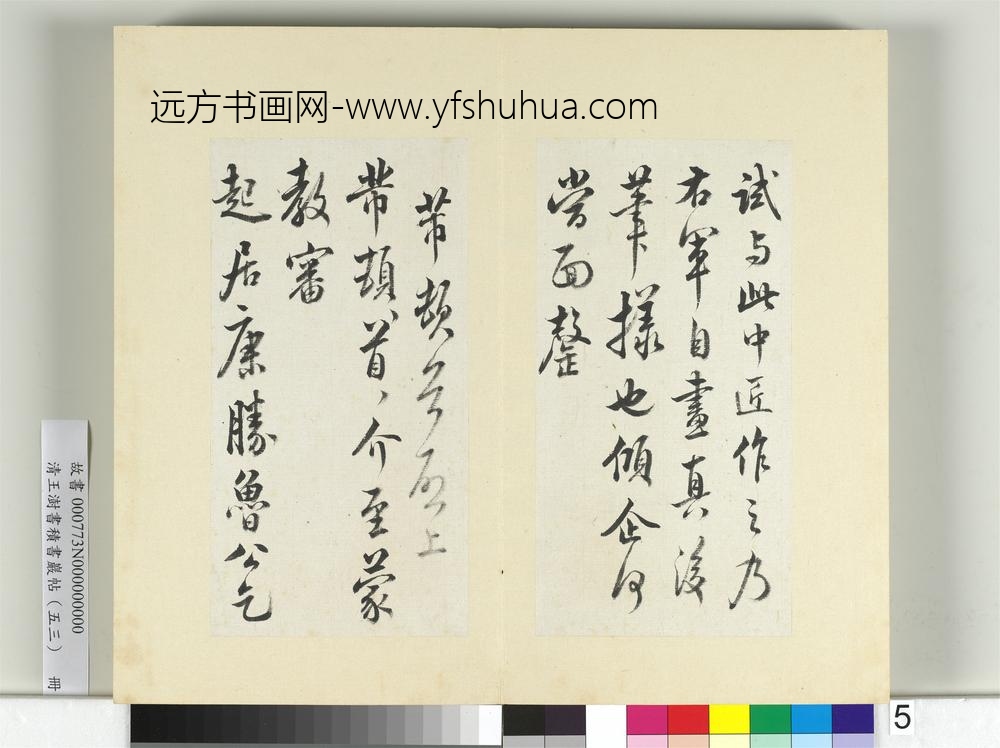 远方书画网-www.yfshuhua.com
試与此中匠作之乃
右軍自畫真後
筆樣也傾企何
當面
芾頓首啟上
芾頓首、介至蒙
教審
起居康勝魯公乞
故書 000773N000000000
清王澍書積書巖帖（五三） 冊
5